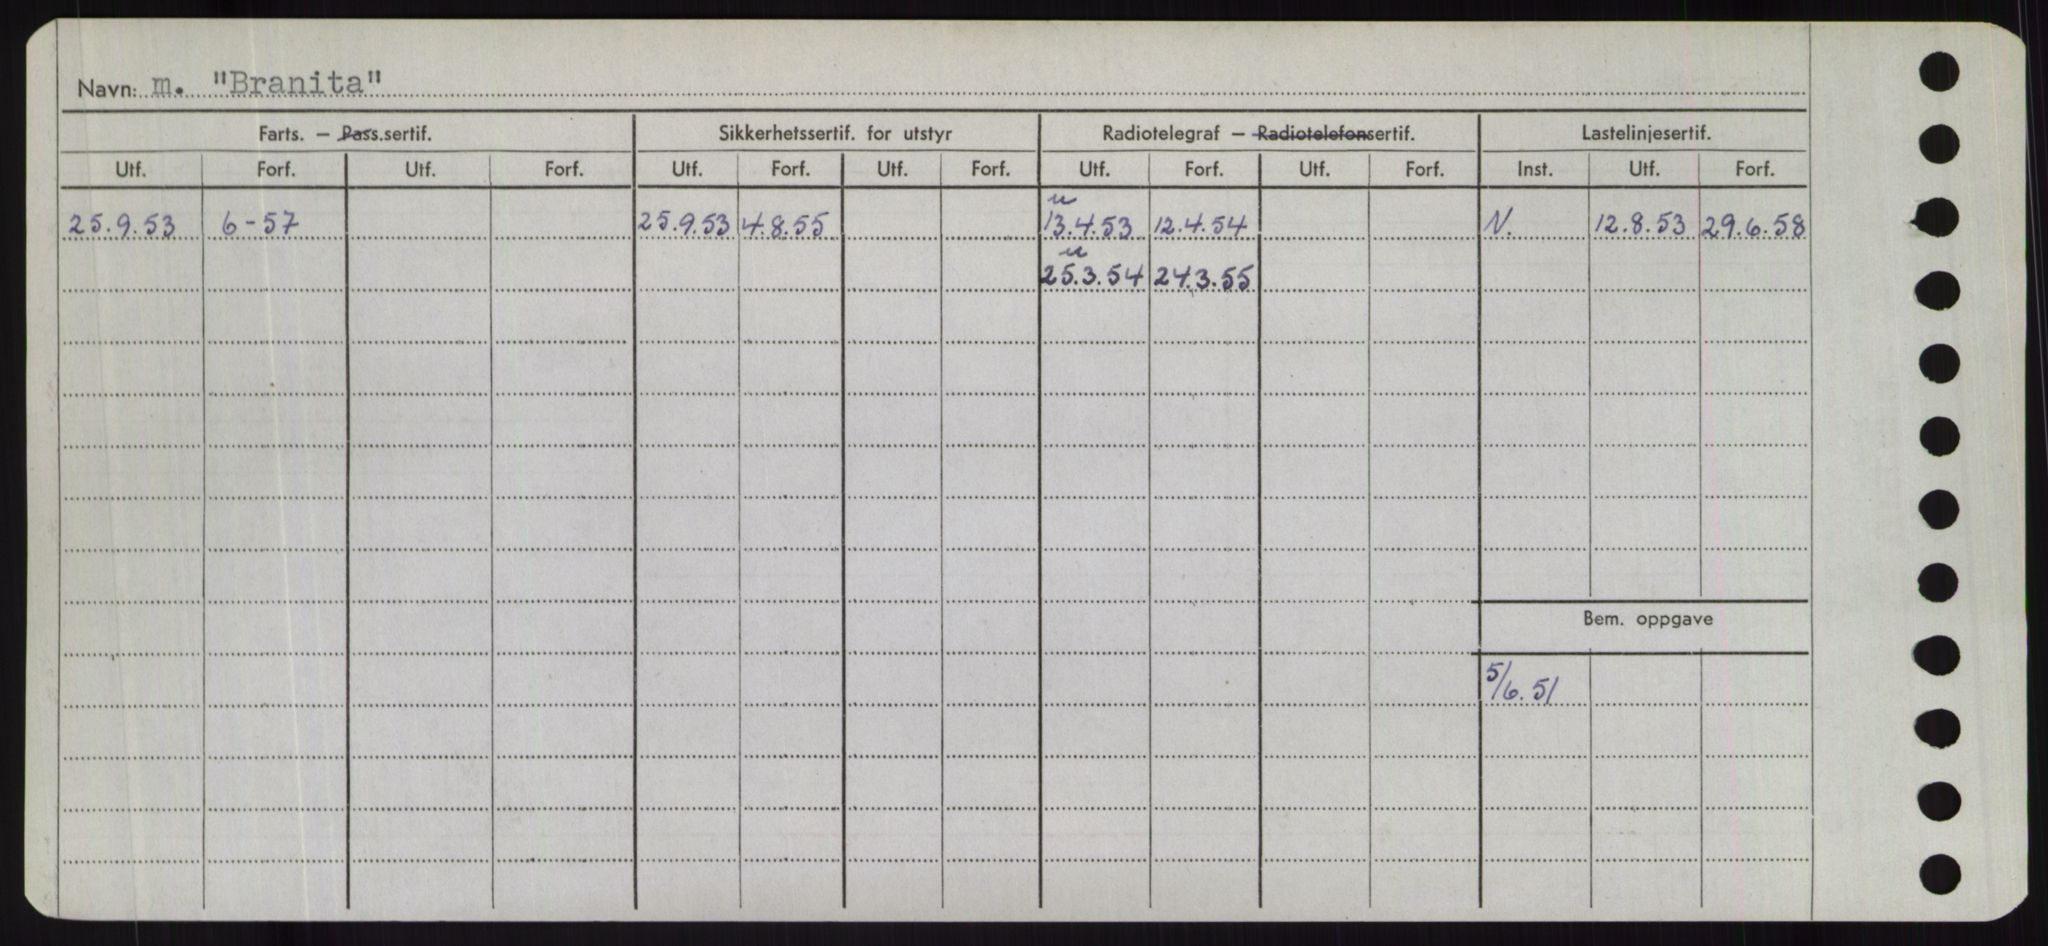 Navn: m. "Branita"
Farts. — Pass.sertif. Sikkerhetssertif. for utstyr Radiotelegraf — Radiotelefonsertif. Lastelinjesertif.
Utf. Forf. Utf. Forf. Utf. Forf. Utf. Forf. Utf. Forf. Utf. Forf. Inst. Utf. Forf.
u
25.9.53 6-57 25.9.53 4.8.55 13.4.53 12.4.54 N. 12.8.53 29.6.58
u
25.3.54 24.3.55
Bem. oppgave
5/6.51